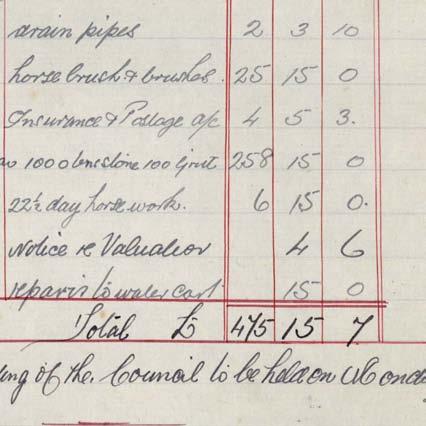 drain pipes 2 3 10
horse brush & brushes 25 15 0
Insurance & Postage a/c 4 5 3.
1000 100 258 15 0
22½ day horse work. 6 15 0.
Notice re Valuation 4 6
reparis to water cart 15 0
Total £ 475 15 7
of the. Council to be held on